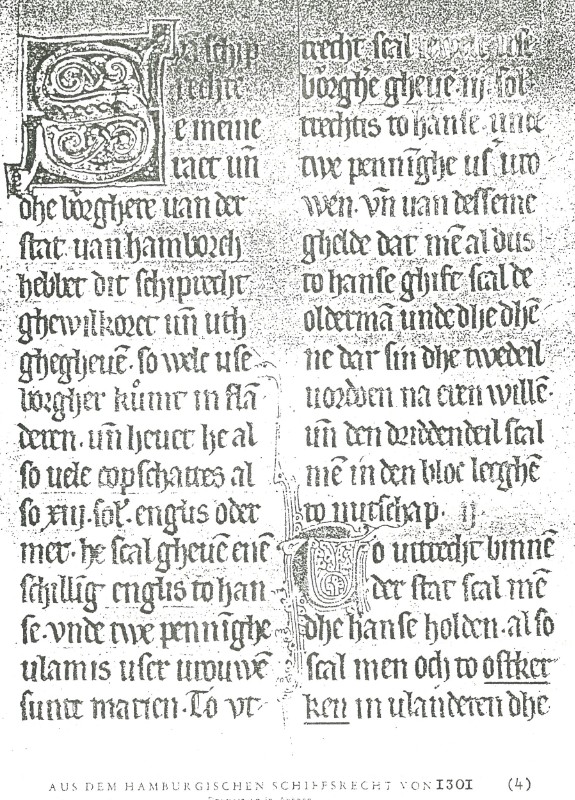 schip
rechte
e meine
raet uñ
dhe börghere uan der
stat· uan hamborch
hebbet dit schiprecht
ghewilkoret uñ uth
ghegheuē· so welc use
borgher kůmt in flā
deren· uñ heuet he al
so uele copschattes al
so xiij· sol· englis oder
mer· he scal gheuē enē
schillīg englis to han
se· vnde twe pennīghe
vlamis user urouwē
sunte marien· To vt
trecht scal
börghe gheuē· iij· sol·
trechtis to hanse· unde
twe pennīghe us' uro
wen· vñ uan desseme
ghelde dat mē al dus
to hanse ghift scal de
oldermā unde dhe dhē
ne dar sin dhe twedeil
uorden na eren willē·
uñ den driddendeil scal
mē in den bloc legghē
to nutschap· ij·
To uttrecht binnē
der stat scal mē
dhe hanse holden· also
scal men och to ostker
ken in ulanderen dhe
AUS DEM HAMBURGISCHEN SCHIFFSRECHT VON 1301 (4)